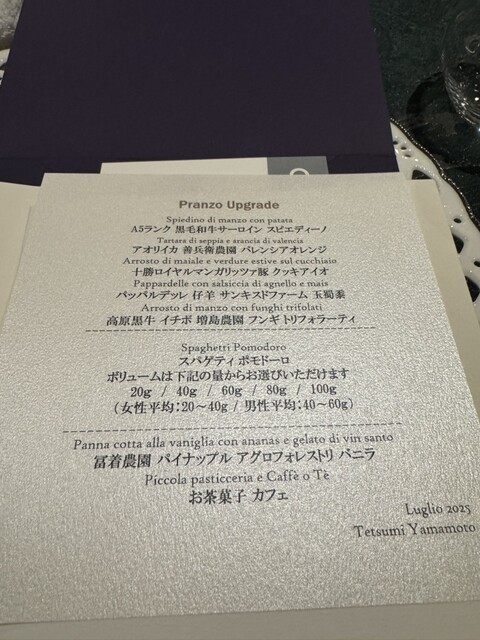 Pranzo Upgrade
Spiedino di manzo con patata
A5ランク 黒毛和牛サーロイン スピエディーノ
Tartara di seppia e arancia di valencia
アオリイカ 善兵衛農園 バレンシアオレンジ
Arrosto di maiale e verdure estive sul cucchiaio
十勝ロイヤルマンガリッツァ豚 クッキアイオ
Pappardelle con salsiccia di agnello e mais
パッパルデッレ 仔羊 サンキスドファーム 玉蜀黍
Arrosto di manzo con funghi trifolati
高原黒牛 イチボ 増島農園 フンギ トリフォラーティ
Spaghetti Pomodoro
スパゲティ ポモドーロ
ボリュームは下記の量からお選びいただけます
20g / 40g / 60g / 80g / 100g
(女性平均：20～40g / 男性平均：40～60g)
Panna cotta alla vaniglia con ananas e gelato di vin santo
冨着農園 パイナップル アグロフォレストリ バニラ
Piccola pasticceria e Caffè o Tè
お茶菓子 カフェ
Luglio 2025
Tetsumi Yamamoto